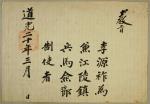 教旨
李源祚爲
兼江陵鎮
兵馬僉節
制使者
道光二十年三月 日